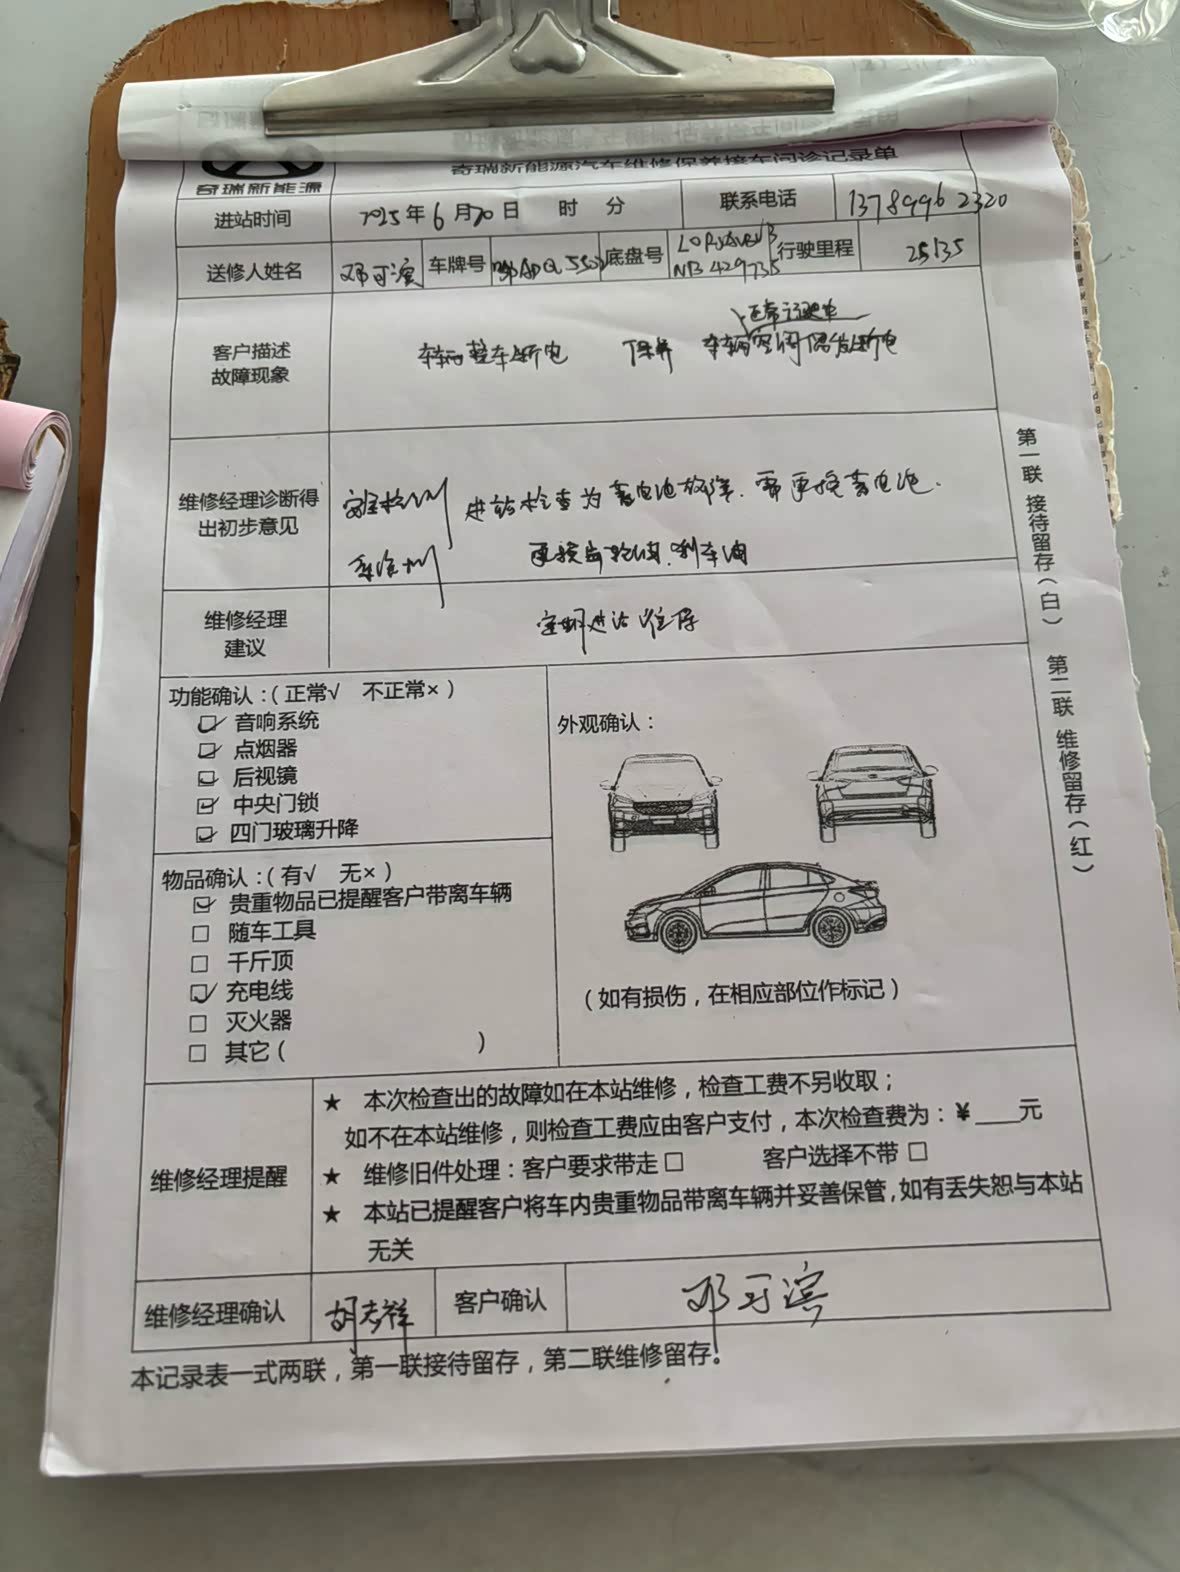 奇瑞新能源汽车维修保养接车问诊记录单
奇瑞新能源
进站时间 2025年6月20日 时 分 联系电话 13789962320
送修人姓名 邓可滨 车牌号 底盘号 行驶里程 25135
NB429735
正常行驶中
客户描述 故障现象 车辆整车断电 保养 车辆空调偶发断电
维修经理诊断得 进站检查为蓄电池故障.需更换蓄电池.
出初步意见
更换齿轮油.刹车油
维修经理
建议
定期进站保养
功能确认:(正常√ 不正常×)
音响系统
点烟器
后视镜
中央门锁
四门玻璃升降
外观确认:
(如有损伤,在相应部位作标记)
物品确认:(有√ 无×)
贵重物品已提醒客户带离车辆
随车工具
千斤顶
充电线
灭火器
其它( )
维修经理提醒
★ 本次检查出的故障如在本站维修,检查工费不另收取;
如不在本站维修,则检查工费应由客户支付,本次检查费为:¥___元
★ 维修旧件处理:客户要求带走□ 客户选择不带□
★ 本站已提醒客户将车内贵重物品带离车辆并妥善保管,如有丢失恕与本站
无关
维修经理确认 胡志祥 客户确认 邓可滨
本记录表一式两联,第一联接待留存,第二联维修留存!
第一联 接待留存(白) 第二联 维修留存(红)